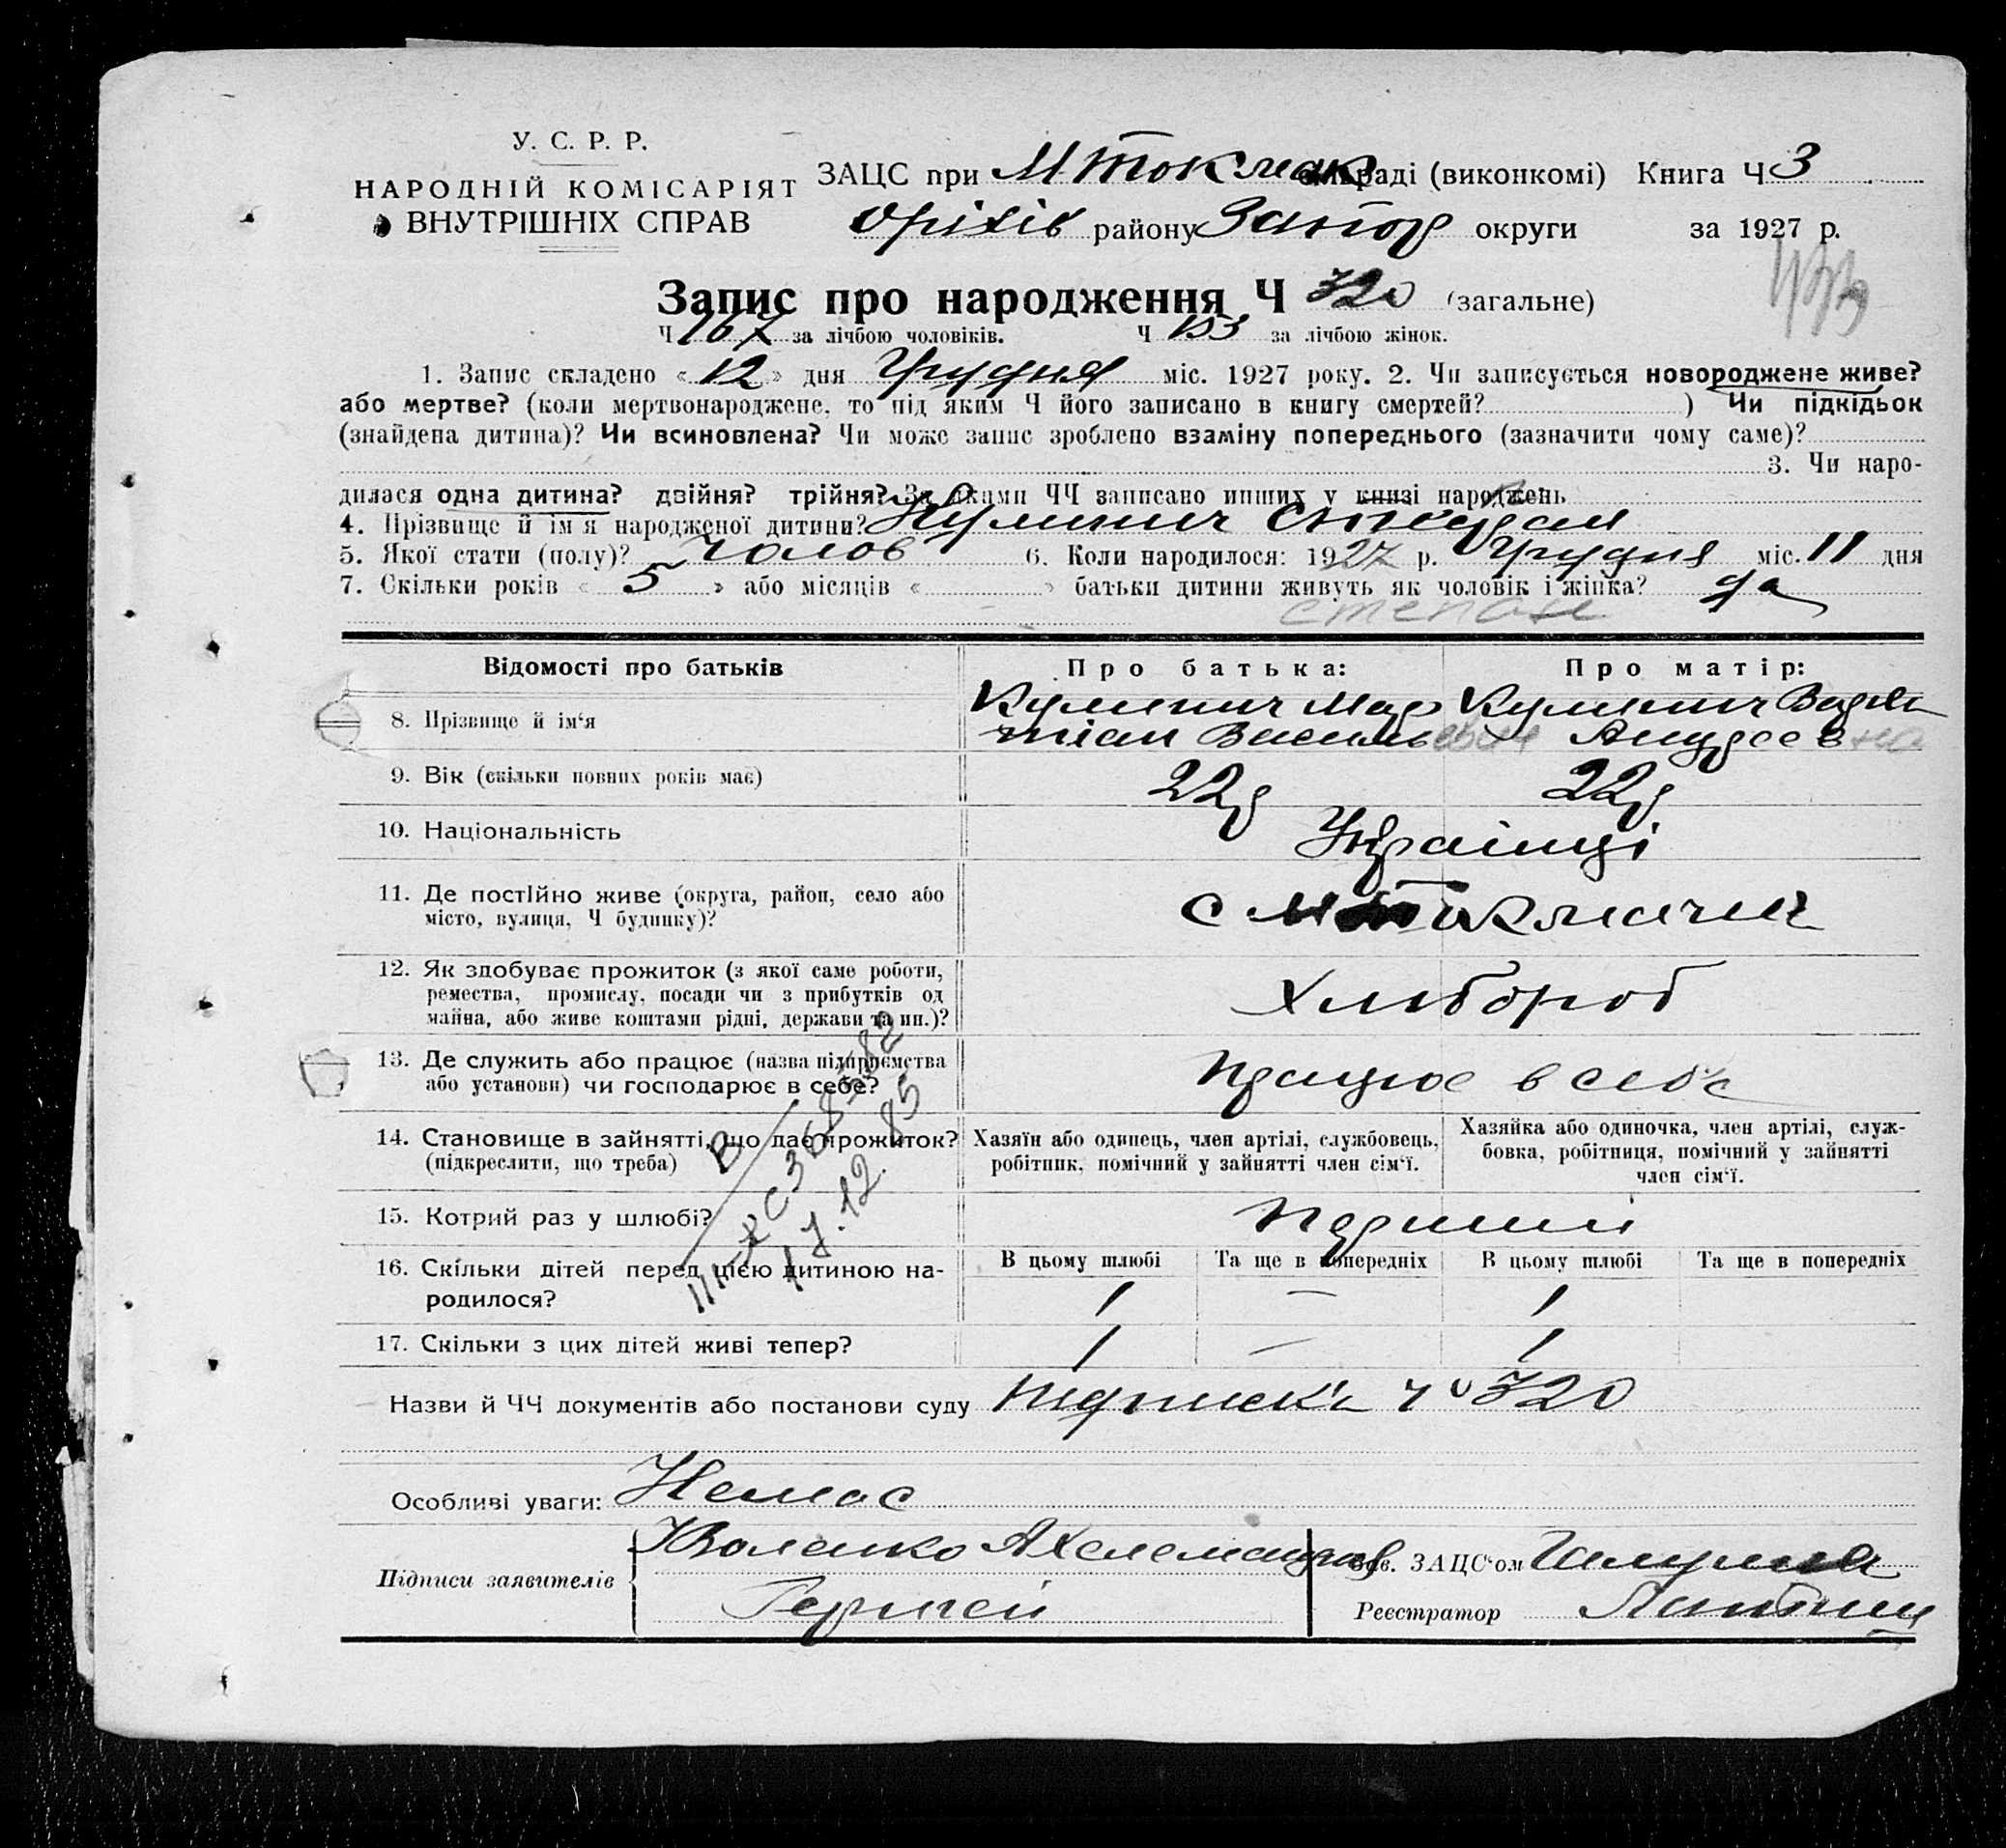 У. С. Р. Р.
НАРОДНІЙ КОМІСАРІЯТ
ВНУТРІШНІХ СПРАВ
ЗАЦС при М Токмак раді (виконкомі) Книга Ч 3
Оріхів району Запор округи за 1927 р.
Запис про народження Ч 320 (загальне)
Ч 167 за лічбою чоловіків. Ч 153 за лічбою жінок.
1. Запис складено « 12 » дня Грудня міс. 1927 року. 2. Чи записується новороджене живе?
або мертве? (коли мертвонароджене, то під яким Ч його записано в книгу смертей? ) Чи підкідьок
(знайдена дитина)? Чи всиновлена? Чи може запис зроблено взаміну попереднього (зазначити чому саме)?
3. Чи наро-
дилася одна дитина? двійня? трійня? За якими ЧЧ записано инших у книзі народжень
4. Прізвище й ім'я народженої дитини? Кулинич
5. Якої стати (полу)? чолов 6. Коли народилося: 1927 р. Грудня міс. 11 дня
7. Скільки років « 5 » або місяців « » батьки дитини живуть як чоловік і жінка? да
степан
Відомості про батьків Про батька: Про матір:
8. Прізвище й ім‘я Кулинич Мар Кулинич
тіан Васильевич Андреевна
9. Вік (скільки повних років має) 22р 22р
10. Національність Українці
11. Де постійно живе (округа, район, село або
місто, вулиця, Ч будинку)? с М Токмачці
12. Як здобуває прожиток (з якої саме роботи,
ремества, промислу, посади чи з прибутків од
майна, або живе коштами рідні, держави та ин.)? Хлибороб
13. Де служить або працює (назва підприємства
або установи) чи господарює в себе? працює в себе
14. Становище в зайнятті, що дає прожиток?
(підкреслити, що треба)
Хазяїн або одинець, член артілі, службовець,
робітник, помічний у зайнятті член сім‘ї.
Хазяйка або одиночка, член артілі, служ-
бовка, робітниця, помічний у зайнятті
член сім‘ї.
17.12.85
15. Котрий раз у шлюбі? Перший
16. Скільки дітей перед цією дитиною на-
родилося?
В цьому шлюбі Та ще в попередніх В цьому шлюбі Та ще в попередніх
1 — 1
17. Скільки з цих дітей живі тепер? 1 — 1
Назви й ЧЧ документів або постанови суду Підписка Ч 320
Особливі уваги: Немає
Підписи заявителів
Зав. ЗАЦС‘ом
Реєстратор